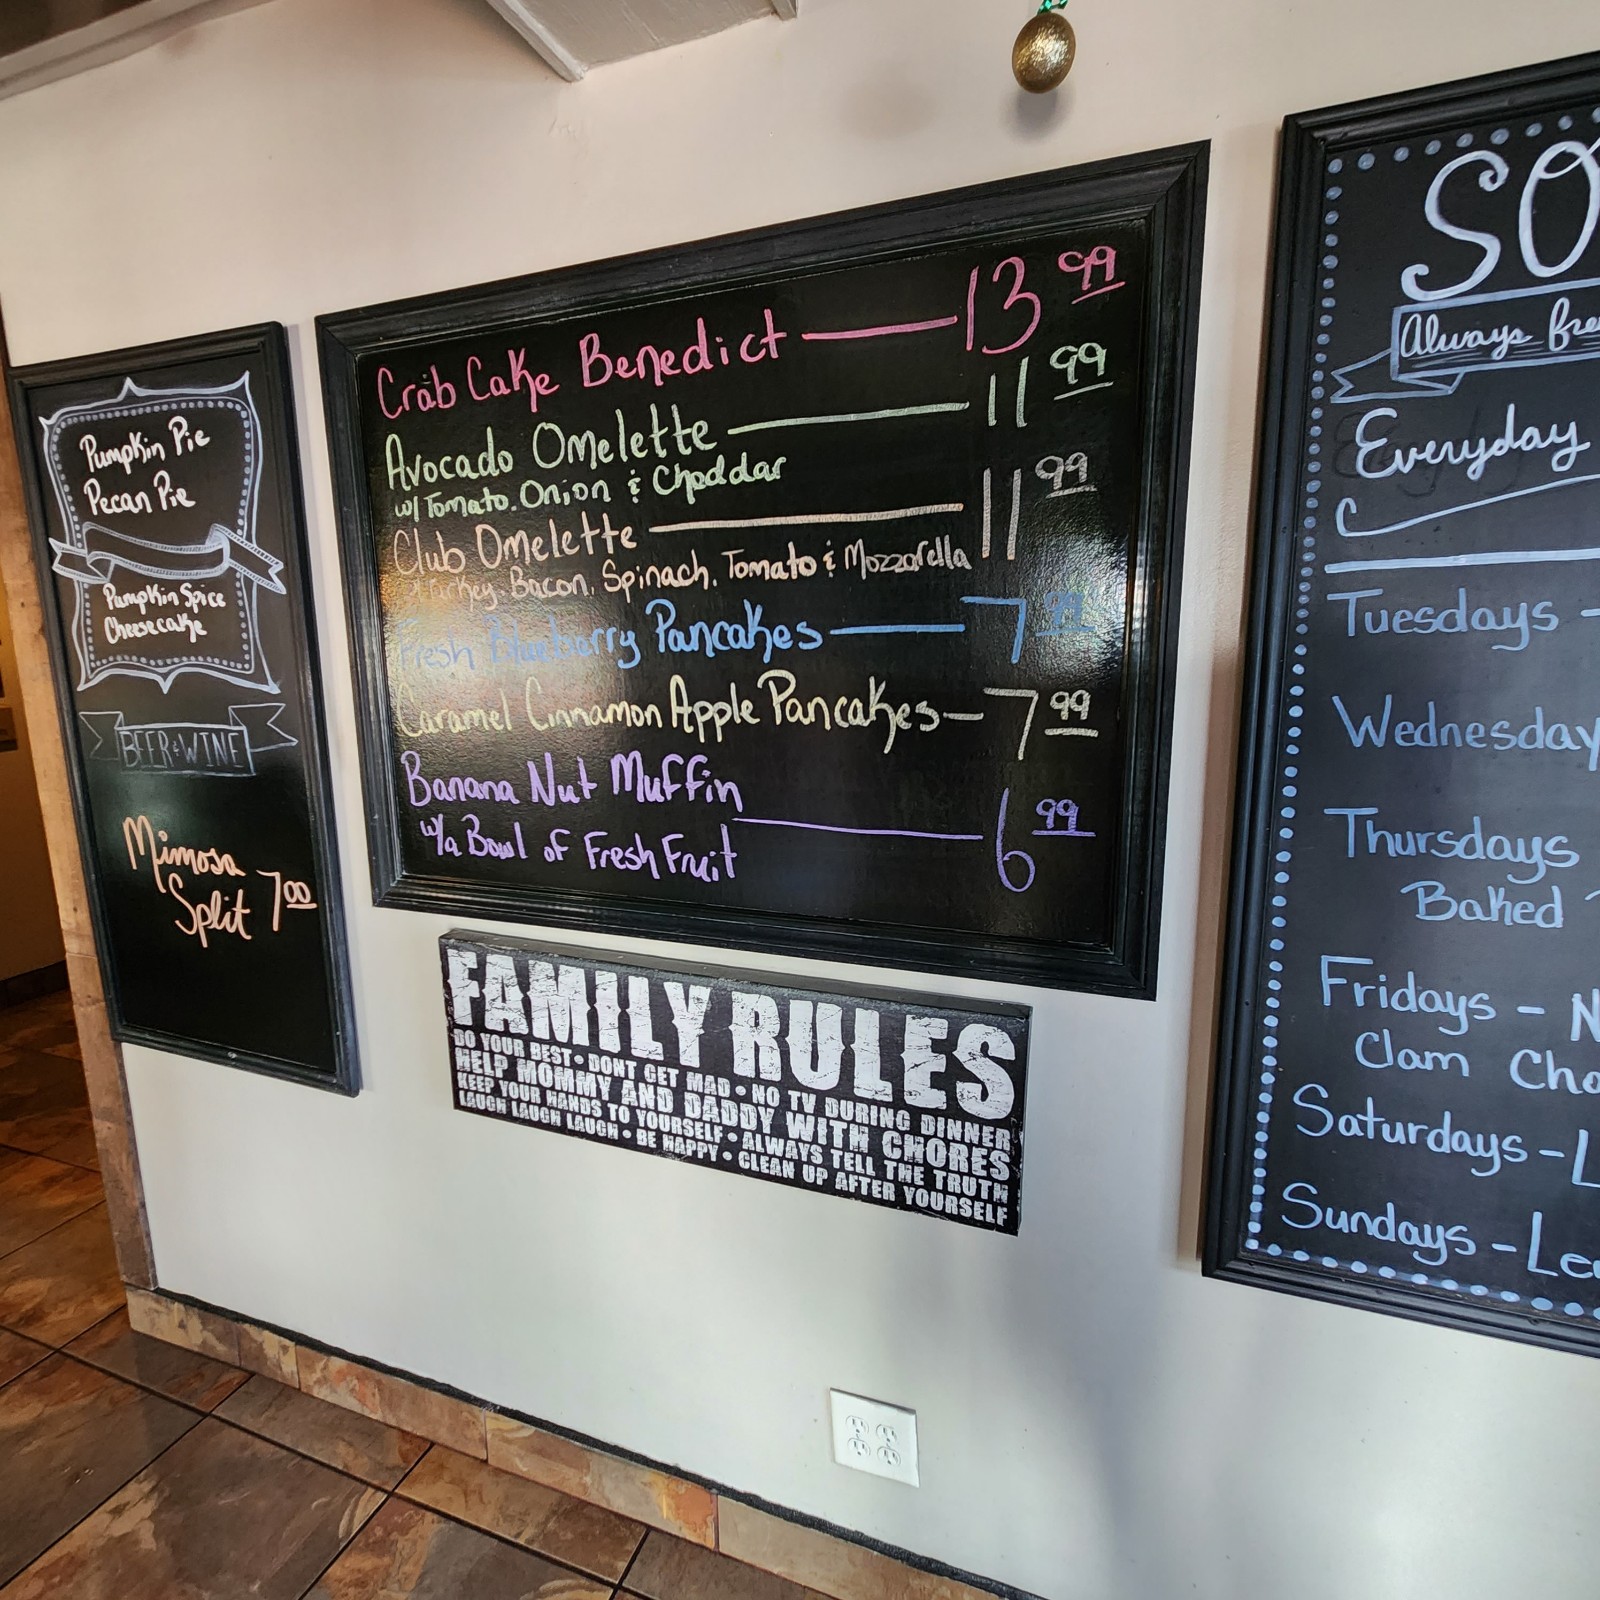 Pumpkin Pie
Pecan Pie
Pumpkin Spice
Cheesecake
BEER & WINE
Mimosa
Split 7.00
Crab Cake Benedict — 13 99
Avocado Omelette — 11 99
w/ Tomato, Onion & Cheddar
Club Omelette — 11 99
Turkey, Bacon, Spinach, Tomato & Mozzarella
Fresh Blueberry Pancakes — 7 99
Caramel Cinnamon Apple Pancakes — 7 99
Banana Nut Muffin
w/a Bowl of Fresh Fruit — 6 99
FAMILY RULES
DO YOUR BEST • DONT GET MAD • NO TV DURING DINNER
HELP MOMMY AND DADDY WITH CHORES
KEEP YOUR HANDS TO YOURSELF • ALWAYS TELL THE TRUTH
LAUGH LAUGH LAUGH • BE HAPPY • CLEAN UP AFTER YOURSELF
SO
Always fre
Everyday
Tuesdays -
Wednesday
Thursdays
Baked
Fridays - N
Clam Cho
Saturdays - L
Sundays - Le